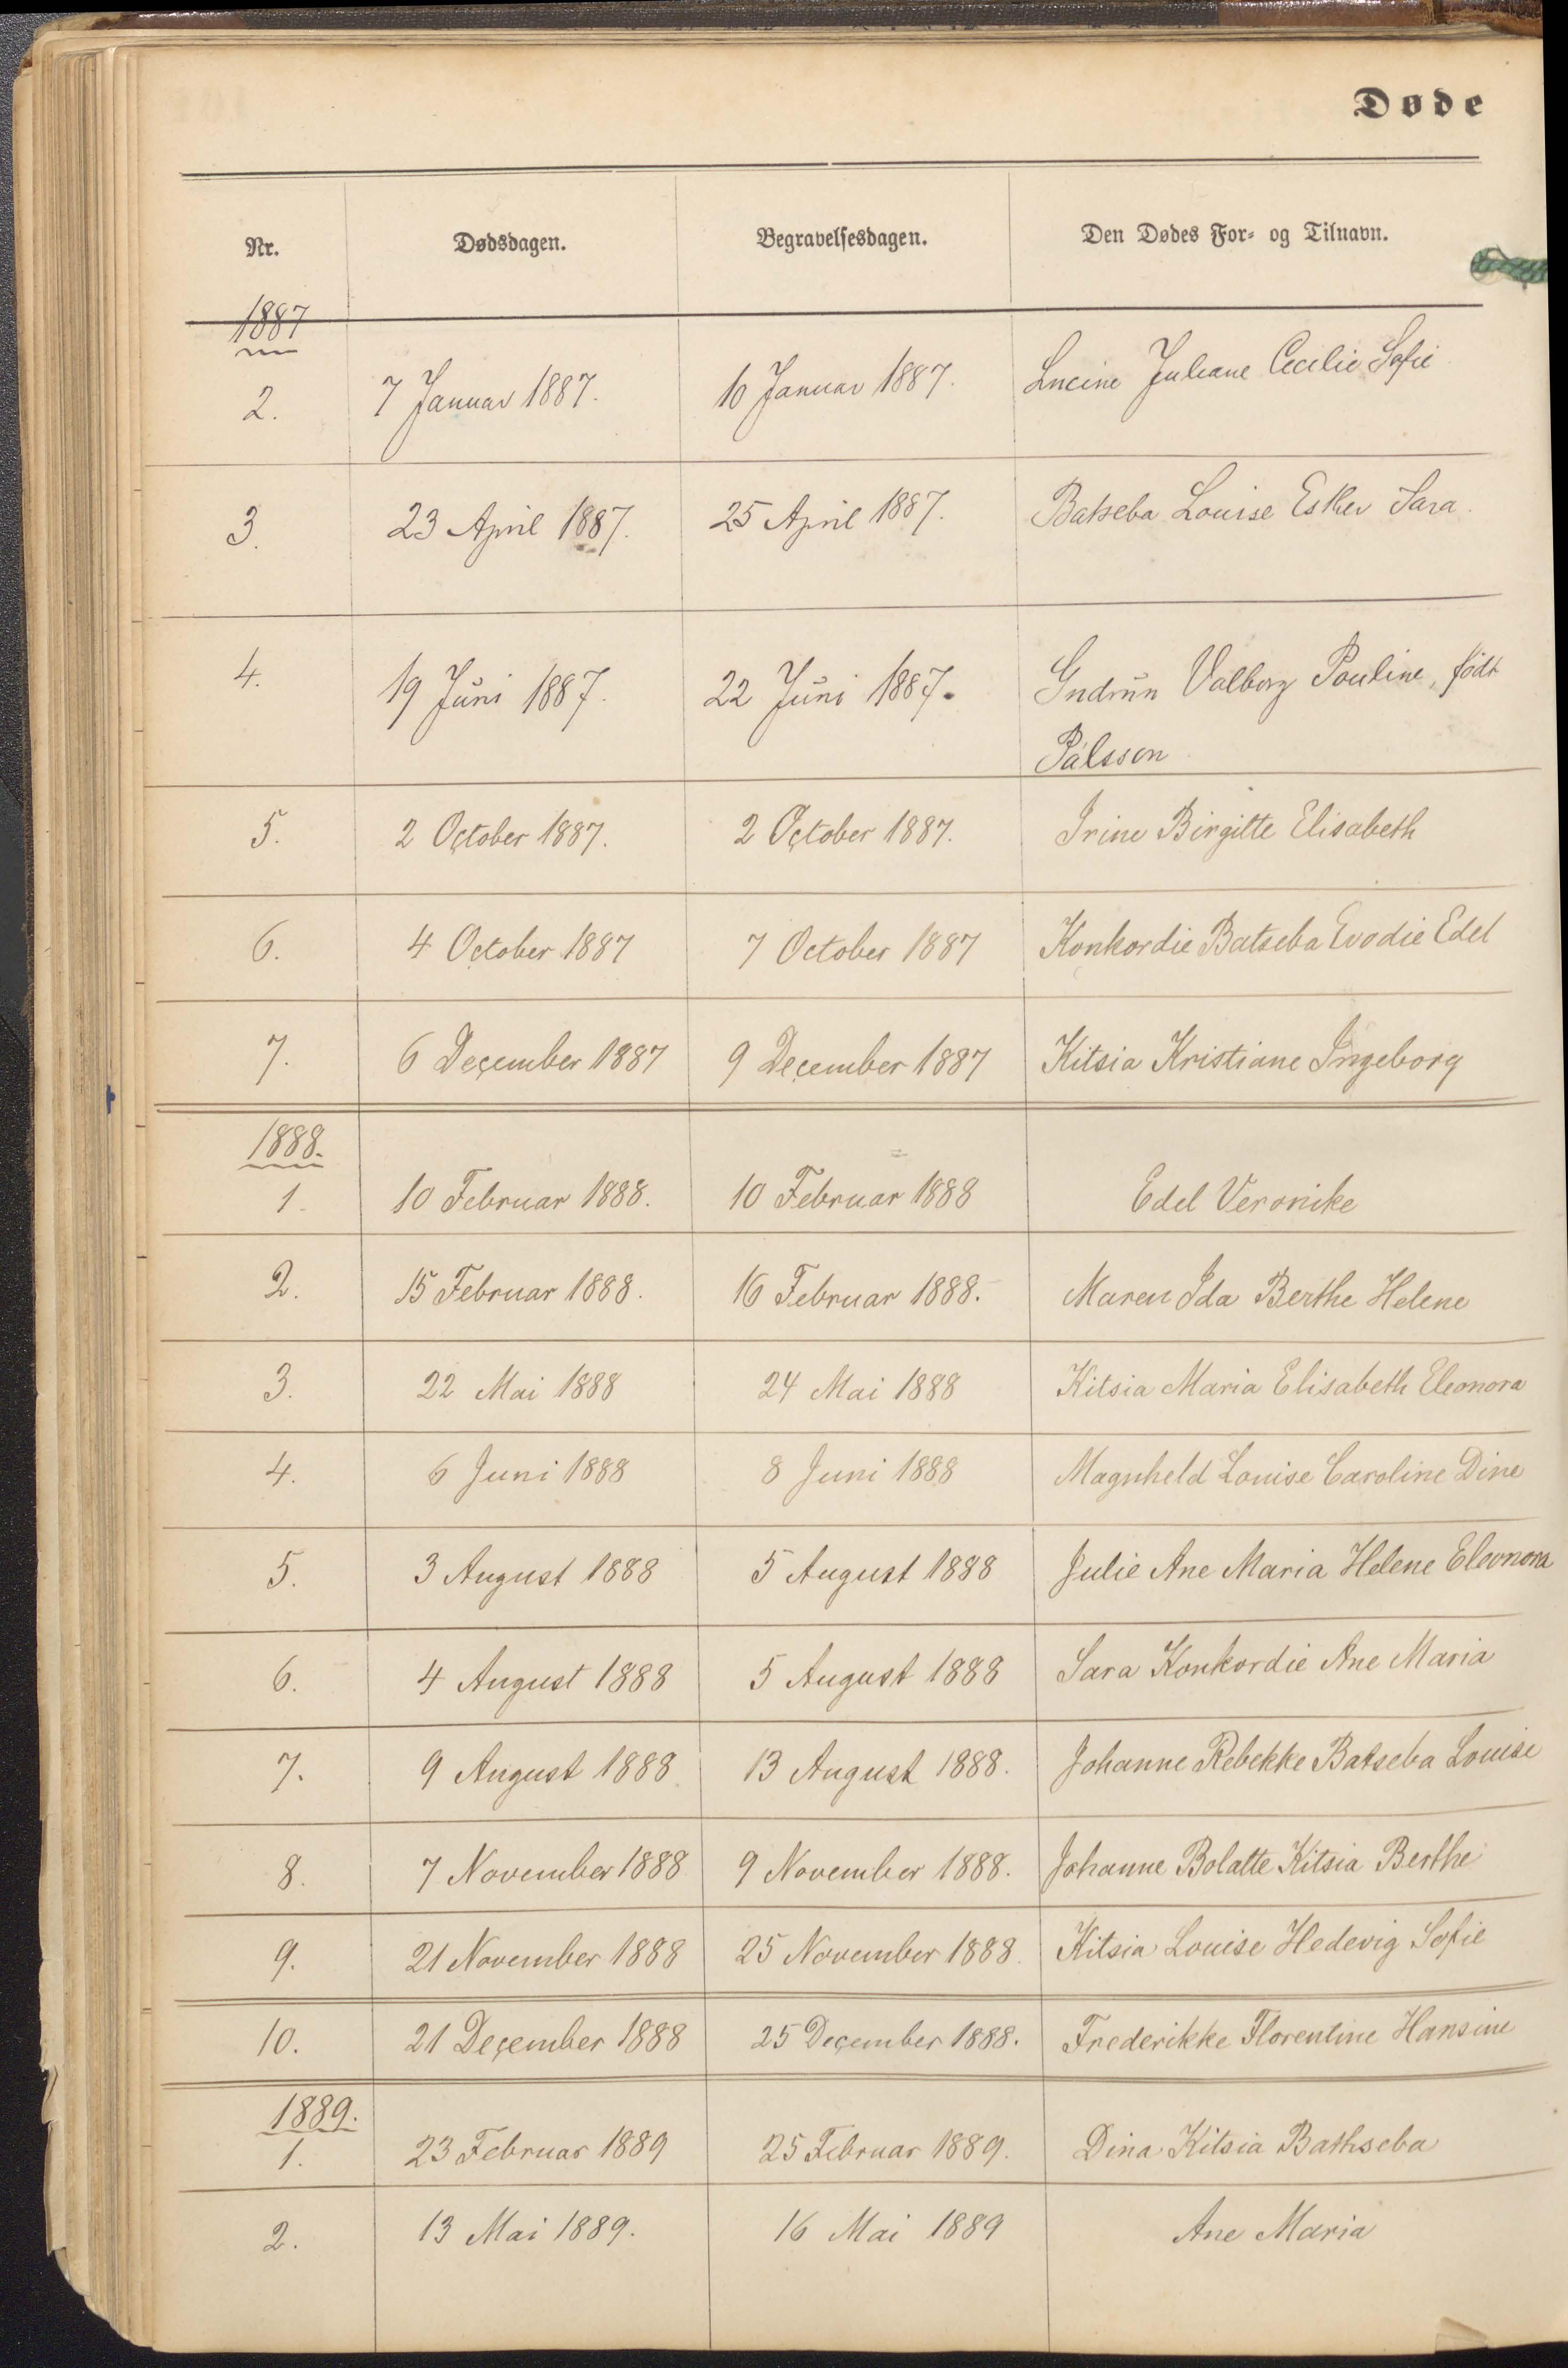 Døde
Nr. Dødsdagen. Begravelsesdagen. Den Dødes For- og Tilnavn.
1887
2. 7 Januar 1887. 10 Januar 1887. Lucine Juliane Cecilie Sofie
3. 23 April 1887. 25 April 1887. Batseba Louise Ester Sara.
4. 19 Juni 1887. 22 Juni 1887. Gudrun Valborg Pouline, födt
Pálsson
5. 2 October 1887. 2 October 1887. Irine Birgitte Elisabeth
6. 4 October 1887 7 October 1887 Konkordie Batseba Evodie Edel
7. 6 December 1887 9 December 1887 Kitsia Kristiane Ingeborg
1888.
1. 10 Februar 1888. 10 Februar 1888 Edel Veronike
2. 15 Februar 1888. 16 Februar 1888. Maren Ida Berthe Helene
3. 22 Mai 1888 24 Mai 1888 Kitsia Maria Elisabeth Eleonora
4. 6 Juni 1888 8 Juni 1888 Magnheld Louise Caroline Dine
5. 3 August 1888 5 August 1888 Julie Ane Maria Helene Eleonora
6. 4 August 1888 5 August 1888 Sara Konkordie Ane Maria
7. 9 August 1888 13 August 1888. Johanne Rebekke Batseba Louise
8. 7 November 1888 9 November 1888. Johanne Bolatte Kitsia Berthe
9. 21 November 1888 25 November 1888. Kitsia Louise Hedevig Sofie
10. 21 December 1888 25 December 1888. Frederikke Florentine Hansine
1889.
1. 23 Februar 1889 25 Februar 1889. Dina Kitsia Bathseba
2. 13 Mai 1889. 16 Mai 1889 Ane Maria